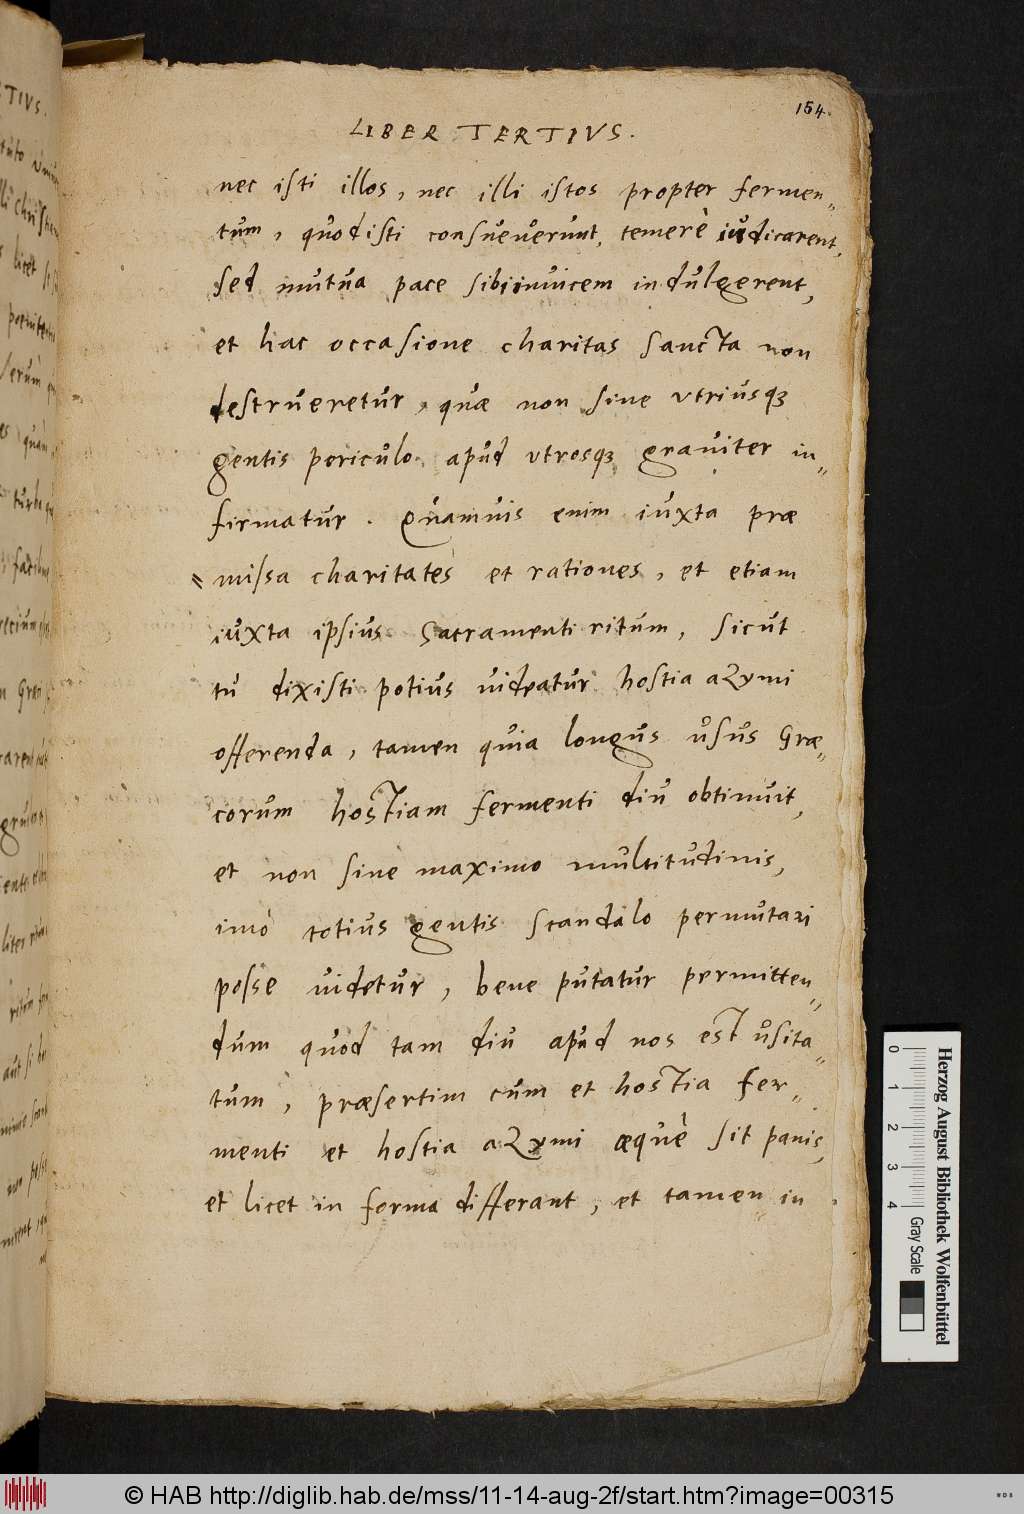 154.
LIBER TERTIVS.
nec isti illos, nec illi istos propter fermen„
tum, quod isti consueuerunt, temerè iudicarent,
sed mutua pace sibi inuicem indulgerent,
et hac occasione charitas sancta non
destrueretur, quæ non sine vtriusqꝫ
gentis periculo apud vtrosqꝫ grauiter in„
firmatur. Quamuis enim iuxta præ
„missa charitates et rationes, et etiam
iuxta ipsius Sacramenti ritum, sicut
tu dixisti potius uideatur hostia azymi
offerenda, tamen quia longus usus Græ„
corum hostiam fermenti diu obtinuit,
et non sine maximo multitudinis,
imò totius gentis scandalo permutari
posse uidetur, bene putatur permitten„
dum quod tam diu apud nos est usita„
tum, præsertim cum et hostia fer„
menti et hostia azymi æquè sit panis,
et licet in forma differant, et tamen in
Herzog August Bibliothek Wolfenbüttel
0 1 2 3 4 Gray Scale
© HAB http://diglib.hab.de/mss/11-14-aug-2f/start.htm?image=00315